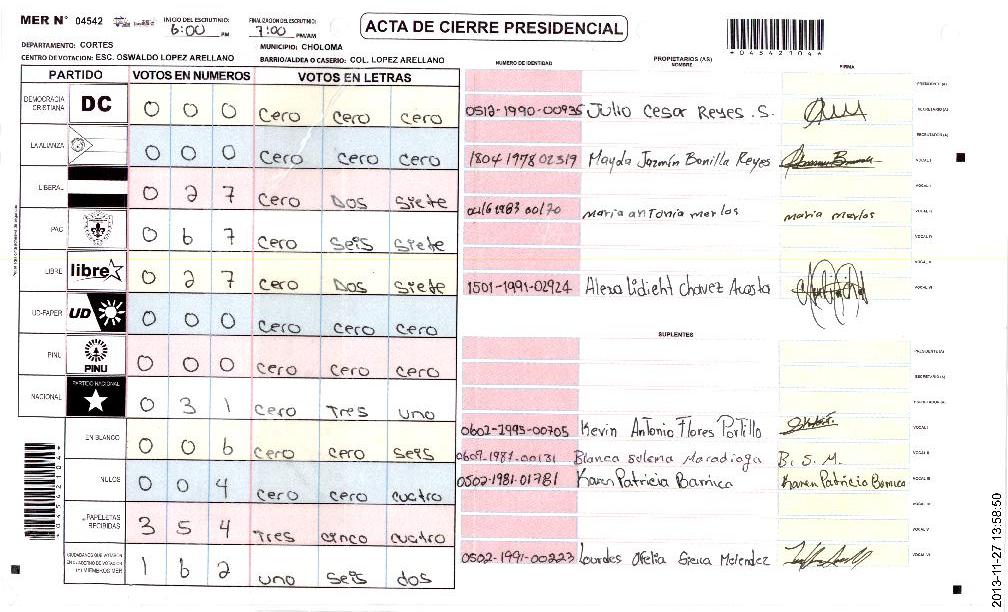 MER N° 04542
INICIO DEL ESCRUTINIO: 6:00 PM
FINALIZACION DEL ESCRUTINIO: 7:00 PM/AM
ACTA DE CIERRE PRESIDENCIAL
*045421046*
DEPARTAMENTO: CORTES
MUNICIPIO: CHOLOMA
CENTRO DE VOTACION: ESC. OSWALDO LOPEZ ARELLANO
BARRIO/ALDEA O CASERIO: COL. LOPEZ ARELLANO
PARTIDO VOTOS EN NUMEROS VOTOS EN LETRAS
DEMOCRACIA CRISTIANA DC 0 0 0 cero cero cero
LA ALIANZA 0 0 0 cero cero cero
LIBERAL 0 2 7 cero Dos siete
PAC 0 6 7 cero seis siete
LIBRE libre 0 2 7 cero Dos siete
UD-FAPER UD 0 0 0 cero cero cero
PINU PINU 0 0 0 cero cero cero
NACIONAL PARTIDO NACIONAL 0 3 1 cero Tres uno
EN BLANCO 0 0 6 cero cero seis
NULOS 0 0 4 cero cero cuatro
PAPELETAS RECIBIDAS 3 5 4 Tres cinco cuatro
CIUDADANOS QUE VOTARON EN CUADERNO DE VOTACION 1 6 2 uno seis dos
NUMERO DE IDENTIDAD PROPIETARIOS (AS) NOMBRE FIRMA
PRESIDENTE (A)
0512-1990-00935 Julio Cesar Reyes .S. SECRETARIO (A)
ESCRUTADOR (A)
1804 1978 02319 Mayda Jazmín Bonilla Reyes VOCAL I
VOCAL II
1983 00170 maria antonia merlos maria merlos VOCAL III
VOCAL IV
VOCAL V
1501-1991-02924 Alexa Lidieht Chavez Acosta VOCAL VI
SUPLENTES
PRESIDENTE (A)
SECRETARIO (A)
ESCRUTADOR (A)
0602-1993-00705 Kevin Antonio Flores Portillo VOCAL I
0607-1987-00131 Blanca Sulema Maradiaga B. S. M. VOCAL II
0502-1981-01781 Karen Patricia Barrica Karen Patricia VOCAL III
VOCAL IV
VOCAL V
0502-1991-00223 Lourdes Ofelia Sierra Melendez VOCAL VI
2013-11-27 13:58:50